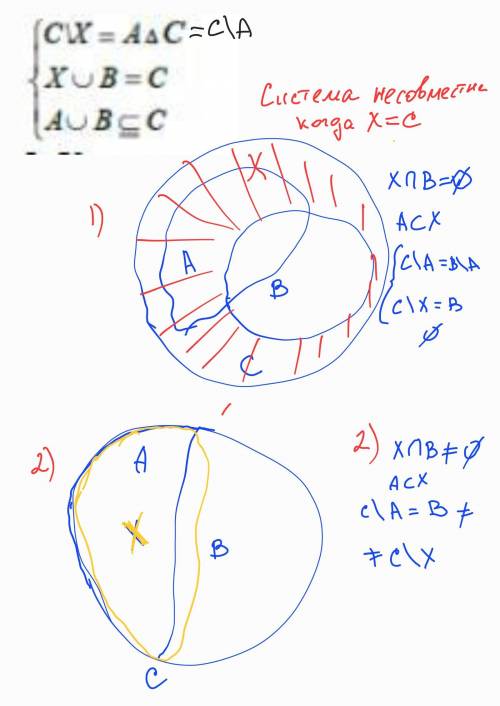 C\X = A△C = C\A
X∪B = C
A∪B ⊆ C
Система несовместна
когда X = C
1)
X
A
B
C
X∩B = ∅
A⊂X
C\A = B\A
C\X = B
∅
2)
A
X
B
C
2) X∩B ≠ ∅
A⊂X
C\A = B ≠
≠ C\X